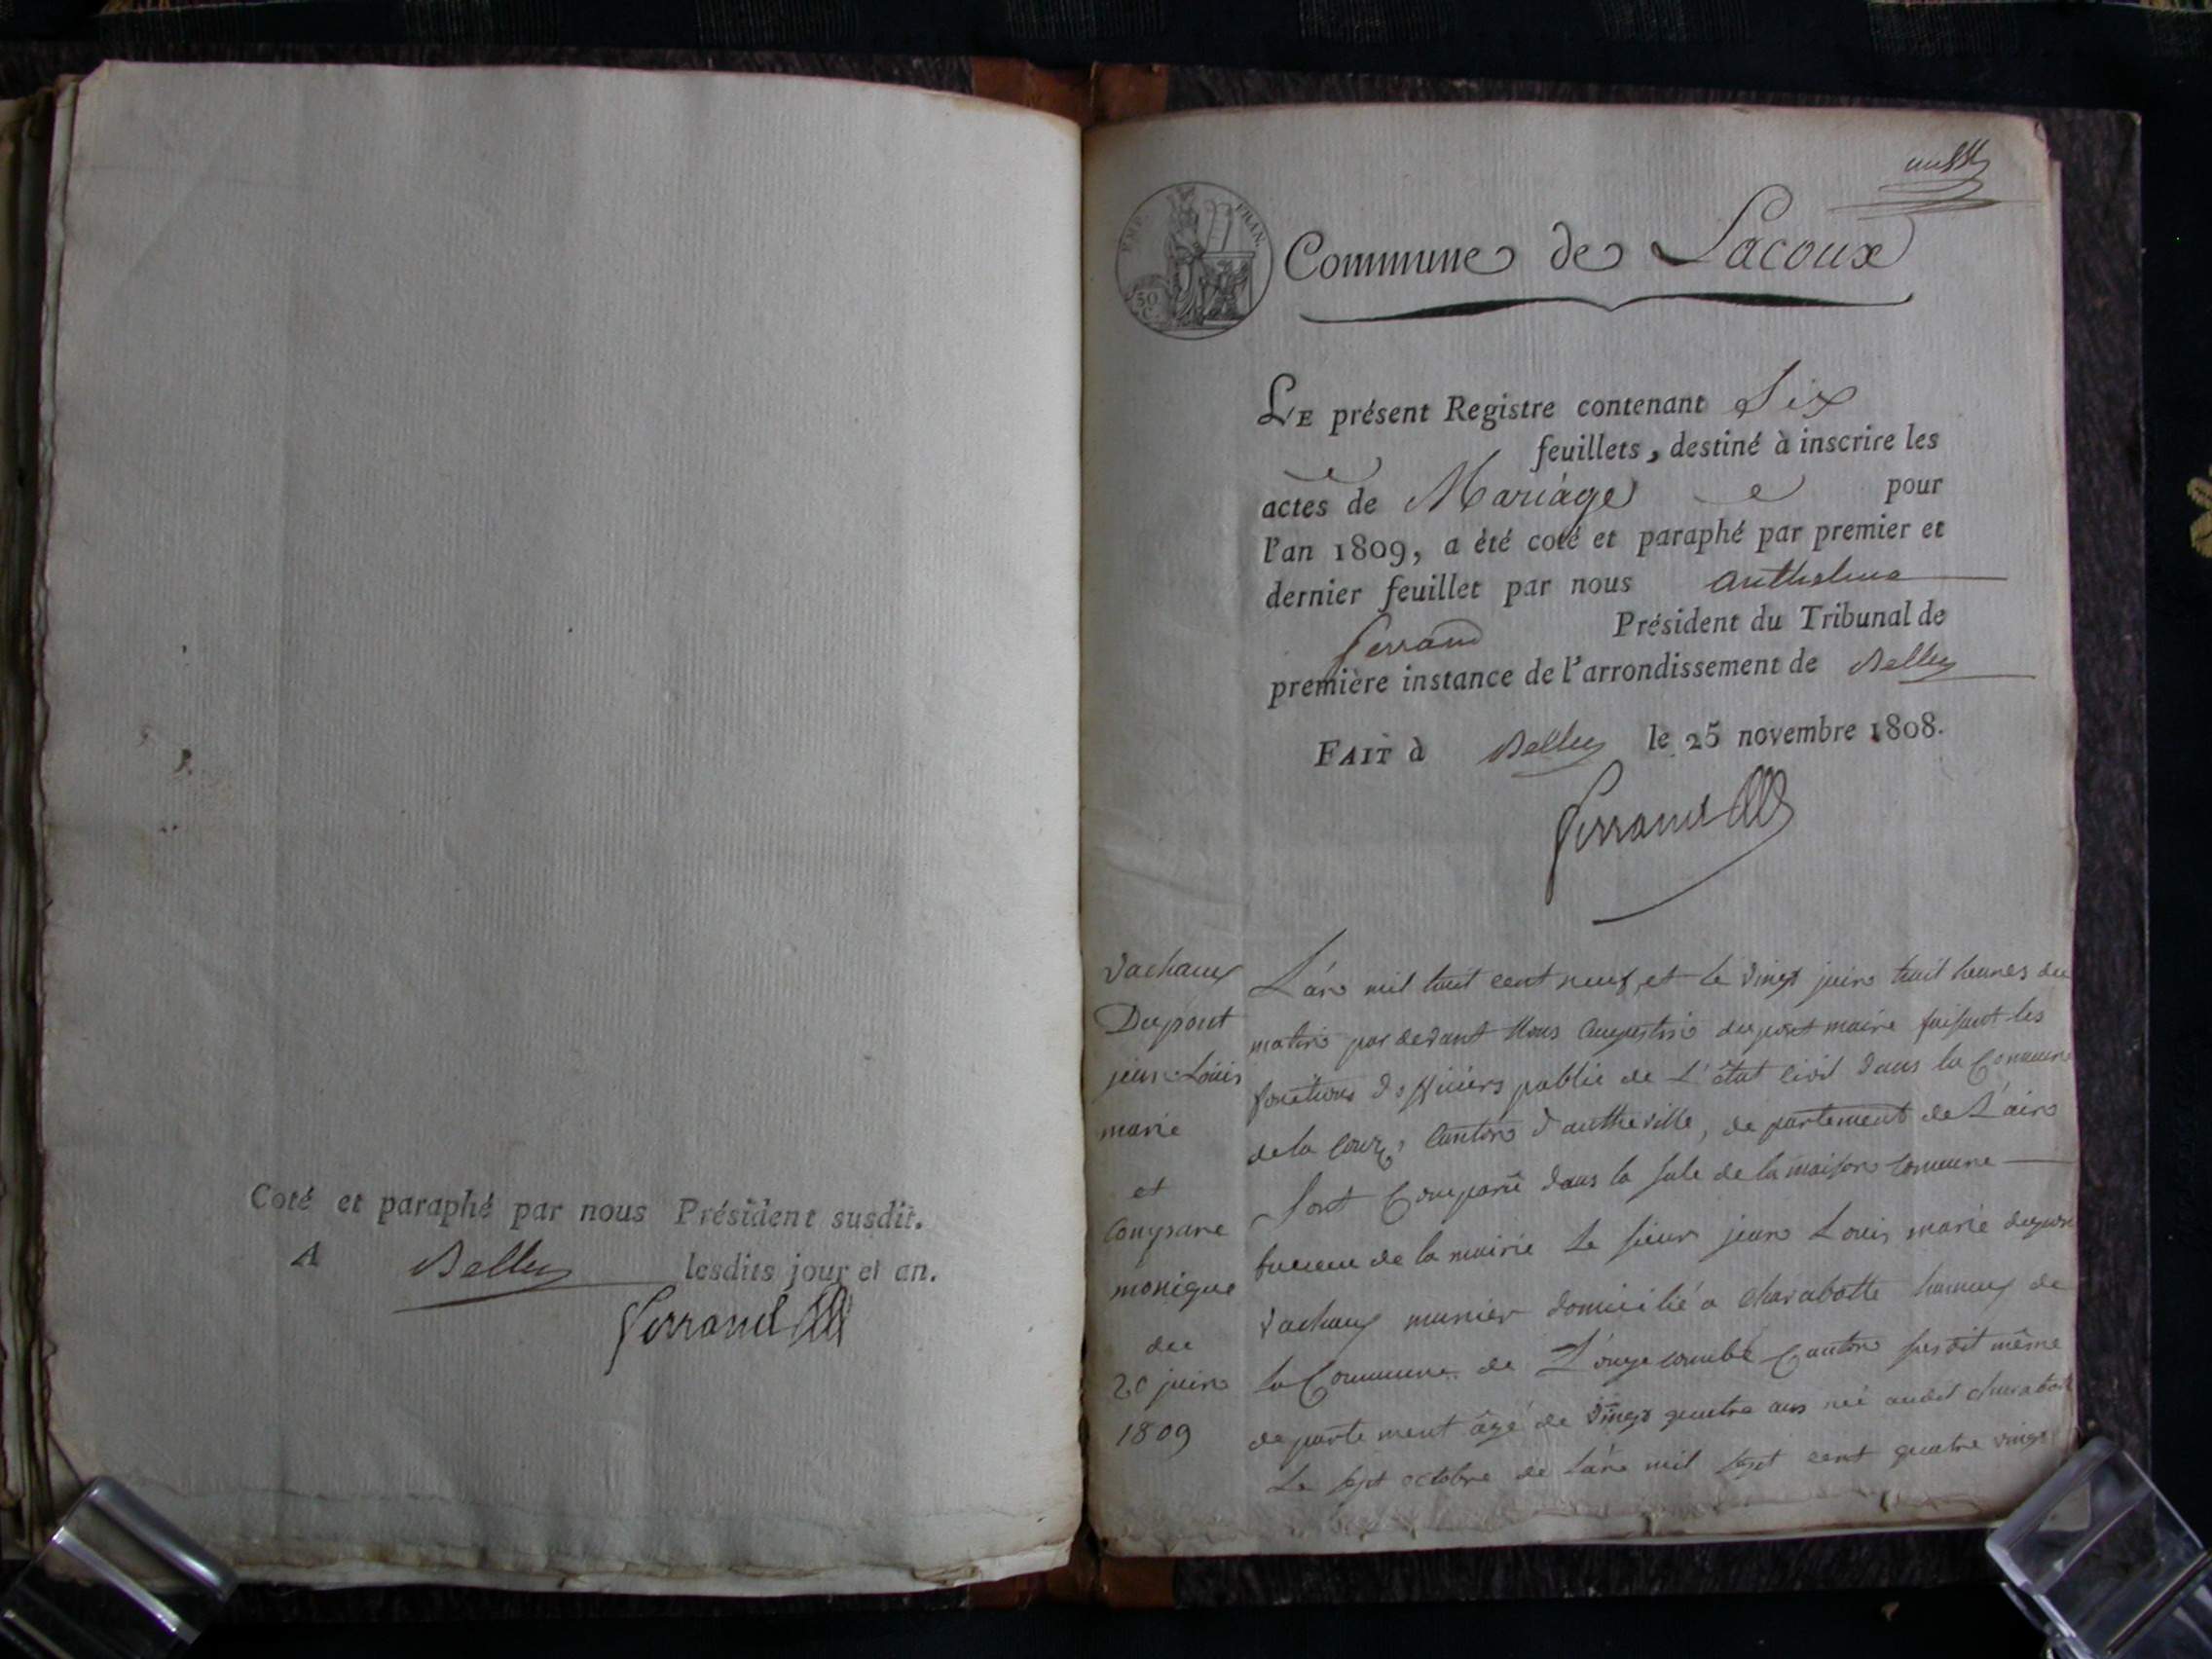 Coté et paraphé par nous Président susdit.
A Belley lesdits jour et an.
Ferrand
EMP. FRAN.
50 C.
Commune de Lacoux
LE présent Registre contenant Six
feuillets, destiné à inscrire les
actes de Mariage pour
l'an 1809, a été coté et paraphé par premier et
dernier feuillet par nous anthelme
ferrand Président du Tribunal de
première instance de l'arrondissement de Belley
FAIT à Belley le 25 novembre 1808.
Ferrand
vachaux
Dupont
jean Louis
marie
et
Compare
monique
du
20 juin
1809
L'an mil huit cent neuf et le vingt juin huit heures du
matin par devant Nous augustin dupont maire faisant les
fonctions d'officiers public de L'état civil dans la Commune
de la Coux, Canton d'autheville, departement de L'ain
Sont Comparu dans la sale de la maison comune
de la mairie Le sieur jean Louis marie dupont
vachaux munier domicilié a Charabotte hameux de
la Commune de Longecombe Canton susdit même
departement âgé de vingt quatre ans né audit charabotte
Le sept octobre de l'an mil sept cent quatre vingt